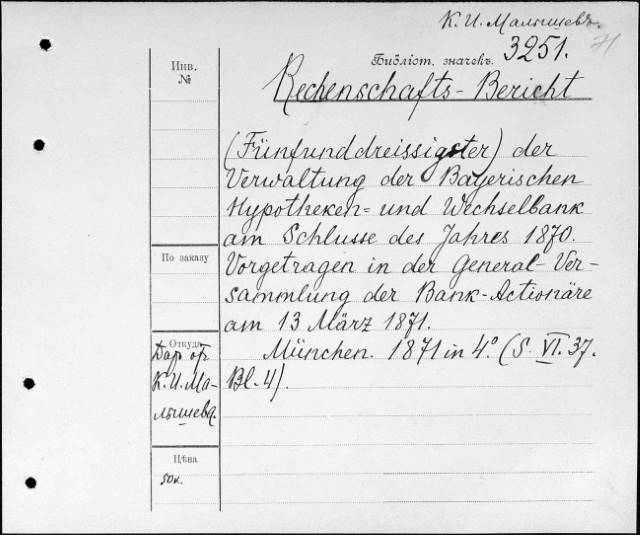 К. И. Малышевъ.
71
Инв.
№
Библіот. значекъ. 3251.
Rechenschafts-Bericht
(Fünfunddreissigster) der
Verwaltung der Bayerischen
Hypotheken- und Wechselbank
am Schlusse des Jahres 1870.
По заказу
Vorgetragen in der General-Ver-
sammlung der Bank-Actionäre
am 13 März 1871.
Откуда
München. 1871 in 4°. (S. VI. 37.
Bl. 4).
Дар от
К. И. Ма-
лышева.
Цѣна
50к.